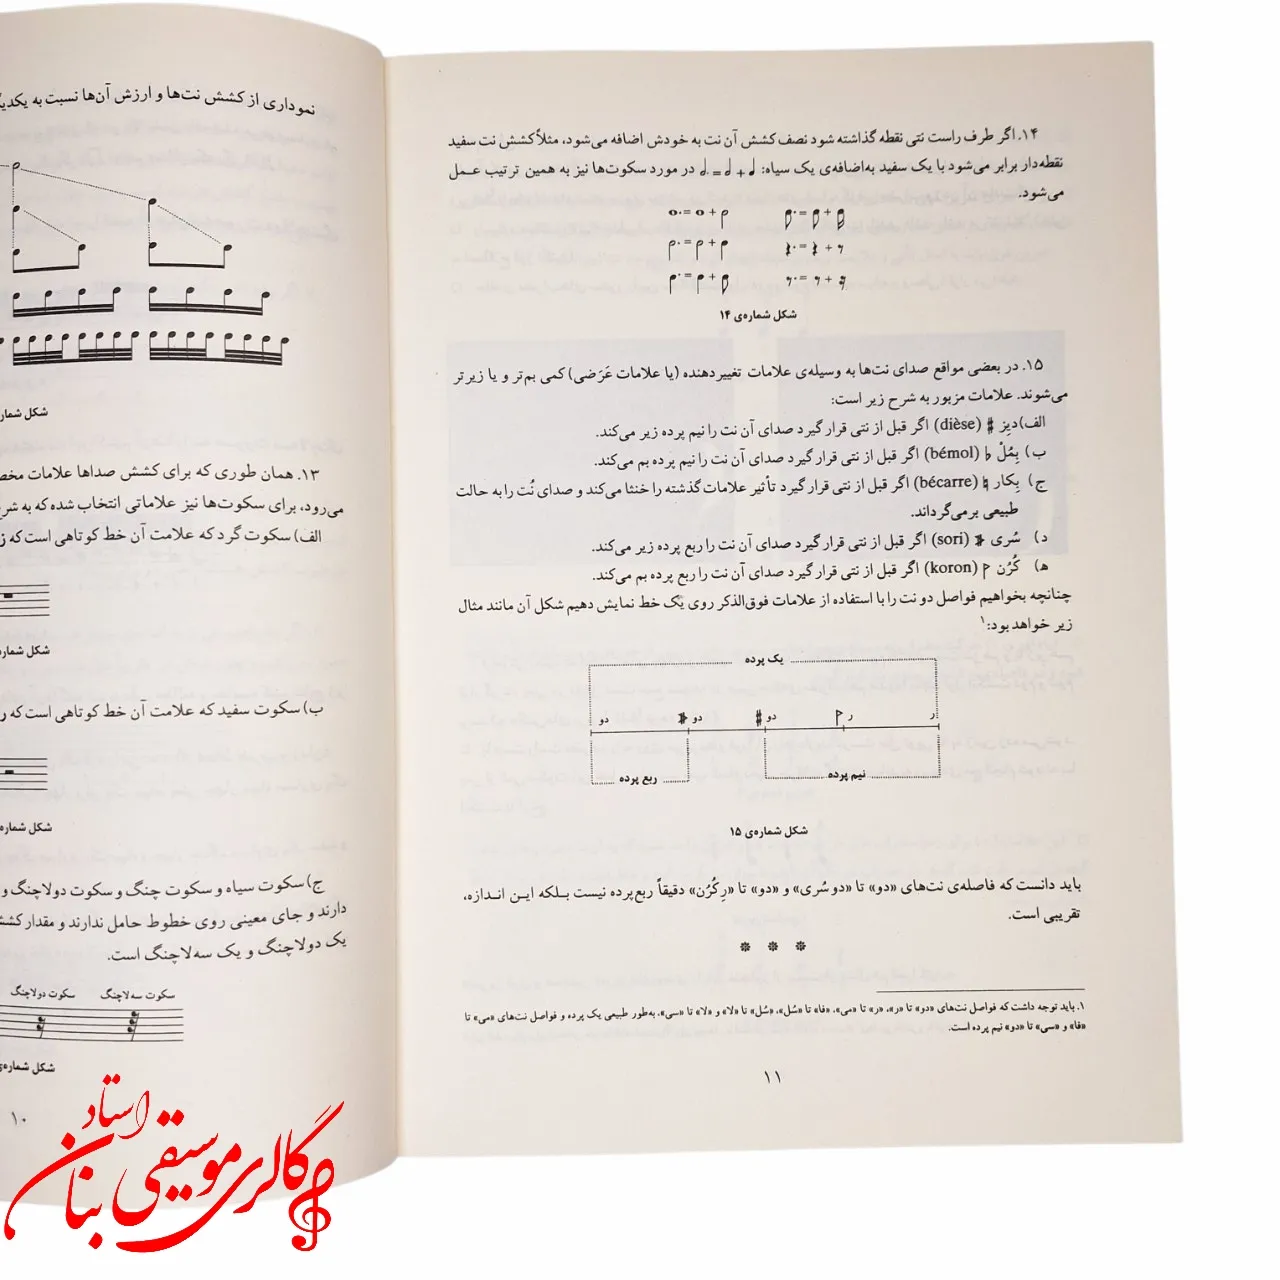 ۱۴. اگر طرف راست نتی نقطه گذاشته شود نصف کشش آن نت به خودش اضافه می‌شود، مثلاً کشش نت سفید
نقطه‌دار برابر می‌شود با یک سفید به‌اضافه‌ی یک سیاه: در مورد سکوت‌ها نیز به همین ترتیب عـمل
می‌شود.
شکل شماره‌ی ۱۴
۱۵. در بعضی مواقع صدای نت‌ها به وسیله‌ی علامات تغییردهنده (یا علامات عَرَضی) کمی بم‌تر و یا زیرتر
می‌شوند. علامات مزبور به شرح زیر است:
الف) دیِز ♯ (dièse) اگر قبل از نتی قرار گیرد صدای آن نت را نیم پرده زیر می‌کند.
ب) بِمُلْ ♭ (bémol) اگر قبل از نتی قرار گیرد صدای آن نت را نیم پرده بم می‌کند.
ج) بِکار ♮ (bécarre) اگر قبل از نتی قرار گیرد تأثیر علامات گذشته را خنثا می‌کند و صدای نُت را به حالت
طبیعی برمی‌گرداند.
د) سُری (sori) اگر قبل از نتی قرار گیرد صدای آن نت را ربع پرده زیر می‌کند.
ه) کُرُن (koron) اگر قبل از نتی قرار گیرد صدای آن نت را ربع پرده بم می‌کند.
چنانچه بخواهیم فواصل دو نت را با استفاده از علامات فوق‌الذکر روی یک خط نمایش دهیم شکل آن مانند مثال
زیر خواهد بود:۱
یک پرده
دو دو دو ر ر
ربع پرده نیم پرده
شکل شماره‌ی ۱۵
باید دانست که فاصله‌ی نت‌های «دو» تا «دو سُری» و «دو» تا «رِکُرُن» دقیقاً ربع‌پرده نیست بـلکه ایـن انـدازه،
تقریبی است.
* * *
۱. باید توجه داشت که فواصل نت‌های «دو» تا «ر»، «ر» تا «می»، «فا» تا «سُل»، «سُل» تا «لا» و «لا» تا «سی»، به‌طور طبیعی یک پرده و فواصل نت‌های «می» تا
«فا» و «سی» تا «دو» نیم پرده است.
۱۱
نموداری از کشش نت‌ها و ارزش آن‌ها نسبت به
شکل
۱۳. همان طوری که برای کشش صداها علامات
می‌رود، برای سکوت‌ها نیز علاماتی انتخاب شده که به
الف) سکوت گرد که علامت آن خط کوتاهی است که
شکل
ب) سکوت سفید که علامت آن خط کوتاهی است که
شکل
ج) سکوت سیاه و سکوت چنگ و سکوت دولاچنگ و
دارند و جای معینی روی خطوط حامل ندارند و مقدار
یک دولاچنگ و یک سه‌لاچنگ است.
سکوت سه‌لاچنگ سکوت دولاچنگ
شکل
۱۰
گالری موسیقی استاد بنان